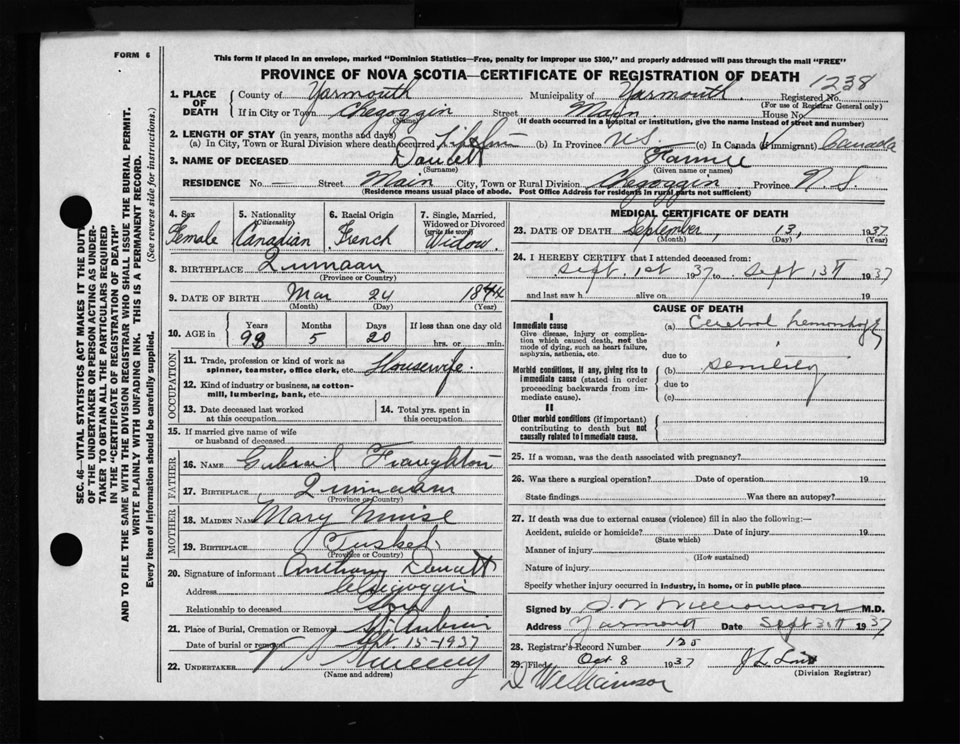 FORM 6
This form if placed in an envelope, marked "Dominion Statistics—Free, penalty for improper use $300," and properly addressed will pass through the mail "FREE"
PROVINCE OF NOVA SCOTIA—CERTIFICATE OF REGISTRATION OF DEATH
1238
1. PLACE OF DEATH
County of Yarmouth Municipality of Yarmouth. Registered No.
(For use of Registrar General only)
If in City or Town Chegoggin Street Main House No.
(Name) (If death occurred in a hospital or institution, give the name instead of street and number)
2. LENGTH OF STAY (in years, months and days)
(a) In City, Town or Rural Division where death occurred Lifetime (b) In Province N.S. (c) In Canada (if immigrant) Canada
3. NAME OF DECEASED Doucett Fannie
(Surname) (Given name or names)
RESIDENCE No. — Street Main City, Town or Rural Division Chegoggin Province N.S.
(Residence means usual place of abode. Post Office Address for residents in rural parts not sufficient)
4. Sex Female
5. Nationality (Citizenship) Canadian
6. Racial Origin French
7. Single, Married, Widowed or Divorced (write the word) Widow.
8. BIRTHPLACE Quinaan
(Province or Country)
9. DATE OF BIRTH Mar 24 1844
(Month) (Day) (Year)
10. AGE in Years Months Days If less than one day old
93 5 20 hrs. or min.
OCCUPATION
11. Trade, profession or kind of work as spinner, teamster, office clerk, etc. Housewife.
12. Kind of industry or business, as cotton-mill, lumbering, bank, etc.
13. Date deceased last worked at this occupation
14. Total yrs. spent in this occupation
15. If married give name of wife or husband of deceased
FATHER
16. NAME Gabriel Fraughton
17. BIRTHPLACE Quinaan
(Province or Country)
MOTHER
18. MAIDEN NAME Mary Muise
19. BIRTHPLACE Tusket
(Province or Country)
20. Signature of informant Anthony Doucett
Address Chegoggin
Relationship to deceased Son
21. Place of Burial, Cremation or Removal
Date of burial or removal Sept. 15-1937
22. UNDERTAKER Sweeney
(Name and address)
MEDICAL CERTIFICATE OF DEATH
23. DATE OF DEATH September, 13, 1937
(Month) (Day) (Year)
24. I HEREBY CERTIFY that I attended deceased from:
Sept. 1st 1937 to Sept 13th 1937
and last saw h alive on 19
CAUSE OF DEATH
I
Immediate cause
Give disease, injury or complication which caused death, not the mode of dying, such as heart failure, asphyxia, asthenia, etc.
(a) Cerebral hemorrhage
due to
Morbid conditions, if any, giving rise to immediate cause (stated in order proceeding backwards from immediate cause).
(b) Senility
due to
(c)
II
Other morbid conditions (if important) contributing to death but not causally related to immediate cause.
25. If a woman, was the death associated with pregnancy?
26. Was there a surgical operation? Date of operation 19
State findings Was there an autopsy?
27. If death was due to external causes (violence) fill in also the following:—
Accident, suicide or homicide? Date of injury 19
(State which)
Manner of injury
(How sustained)
Nature of injury
Specify whether injury occurred in industry, in home, or in public place
Signed by S. W. Williamson M.D.
Address Yarmouth Date Sept 1937
28. Registrar's Record Number 125
29. Filed Oct 8 1937
(Division Registrar)
Williamson
SEC. 46—VITAL STATISTICS ACT MAKES IT THE DUTY
OF THE UNDERTAKER OR PERSON ACTING AS UNDER-
TAKER TO OBTAIN ALL THE PARTICULARS REQUIRED
IN THE "CERTIFICATE OF REGISTRATION OF DEATH"
AND TO FILE THE SAME WITH THE DIVISION REGISTRAR WHO SHALL ISSUE THE BURIAL PERMIT.
WRITE PLAINLY WITH UNFADING INK. THIS IS A PERMANENT RECORD.
Every item of information should be carefully supplied. (See reverse side for instructions.)